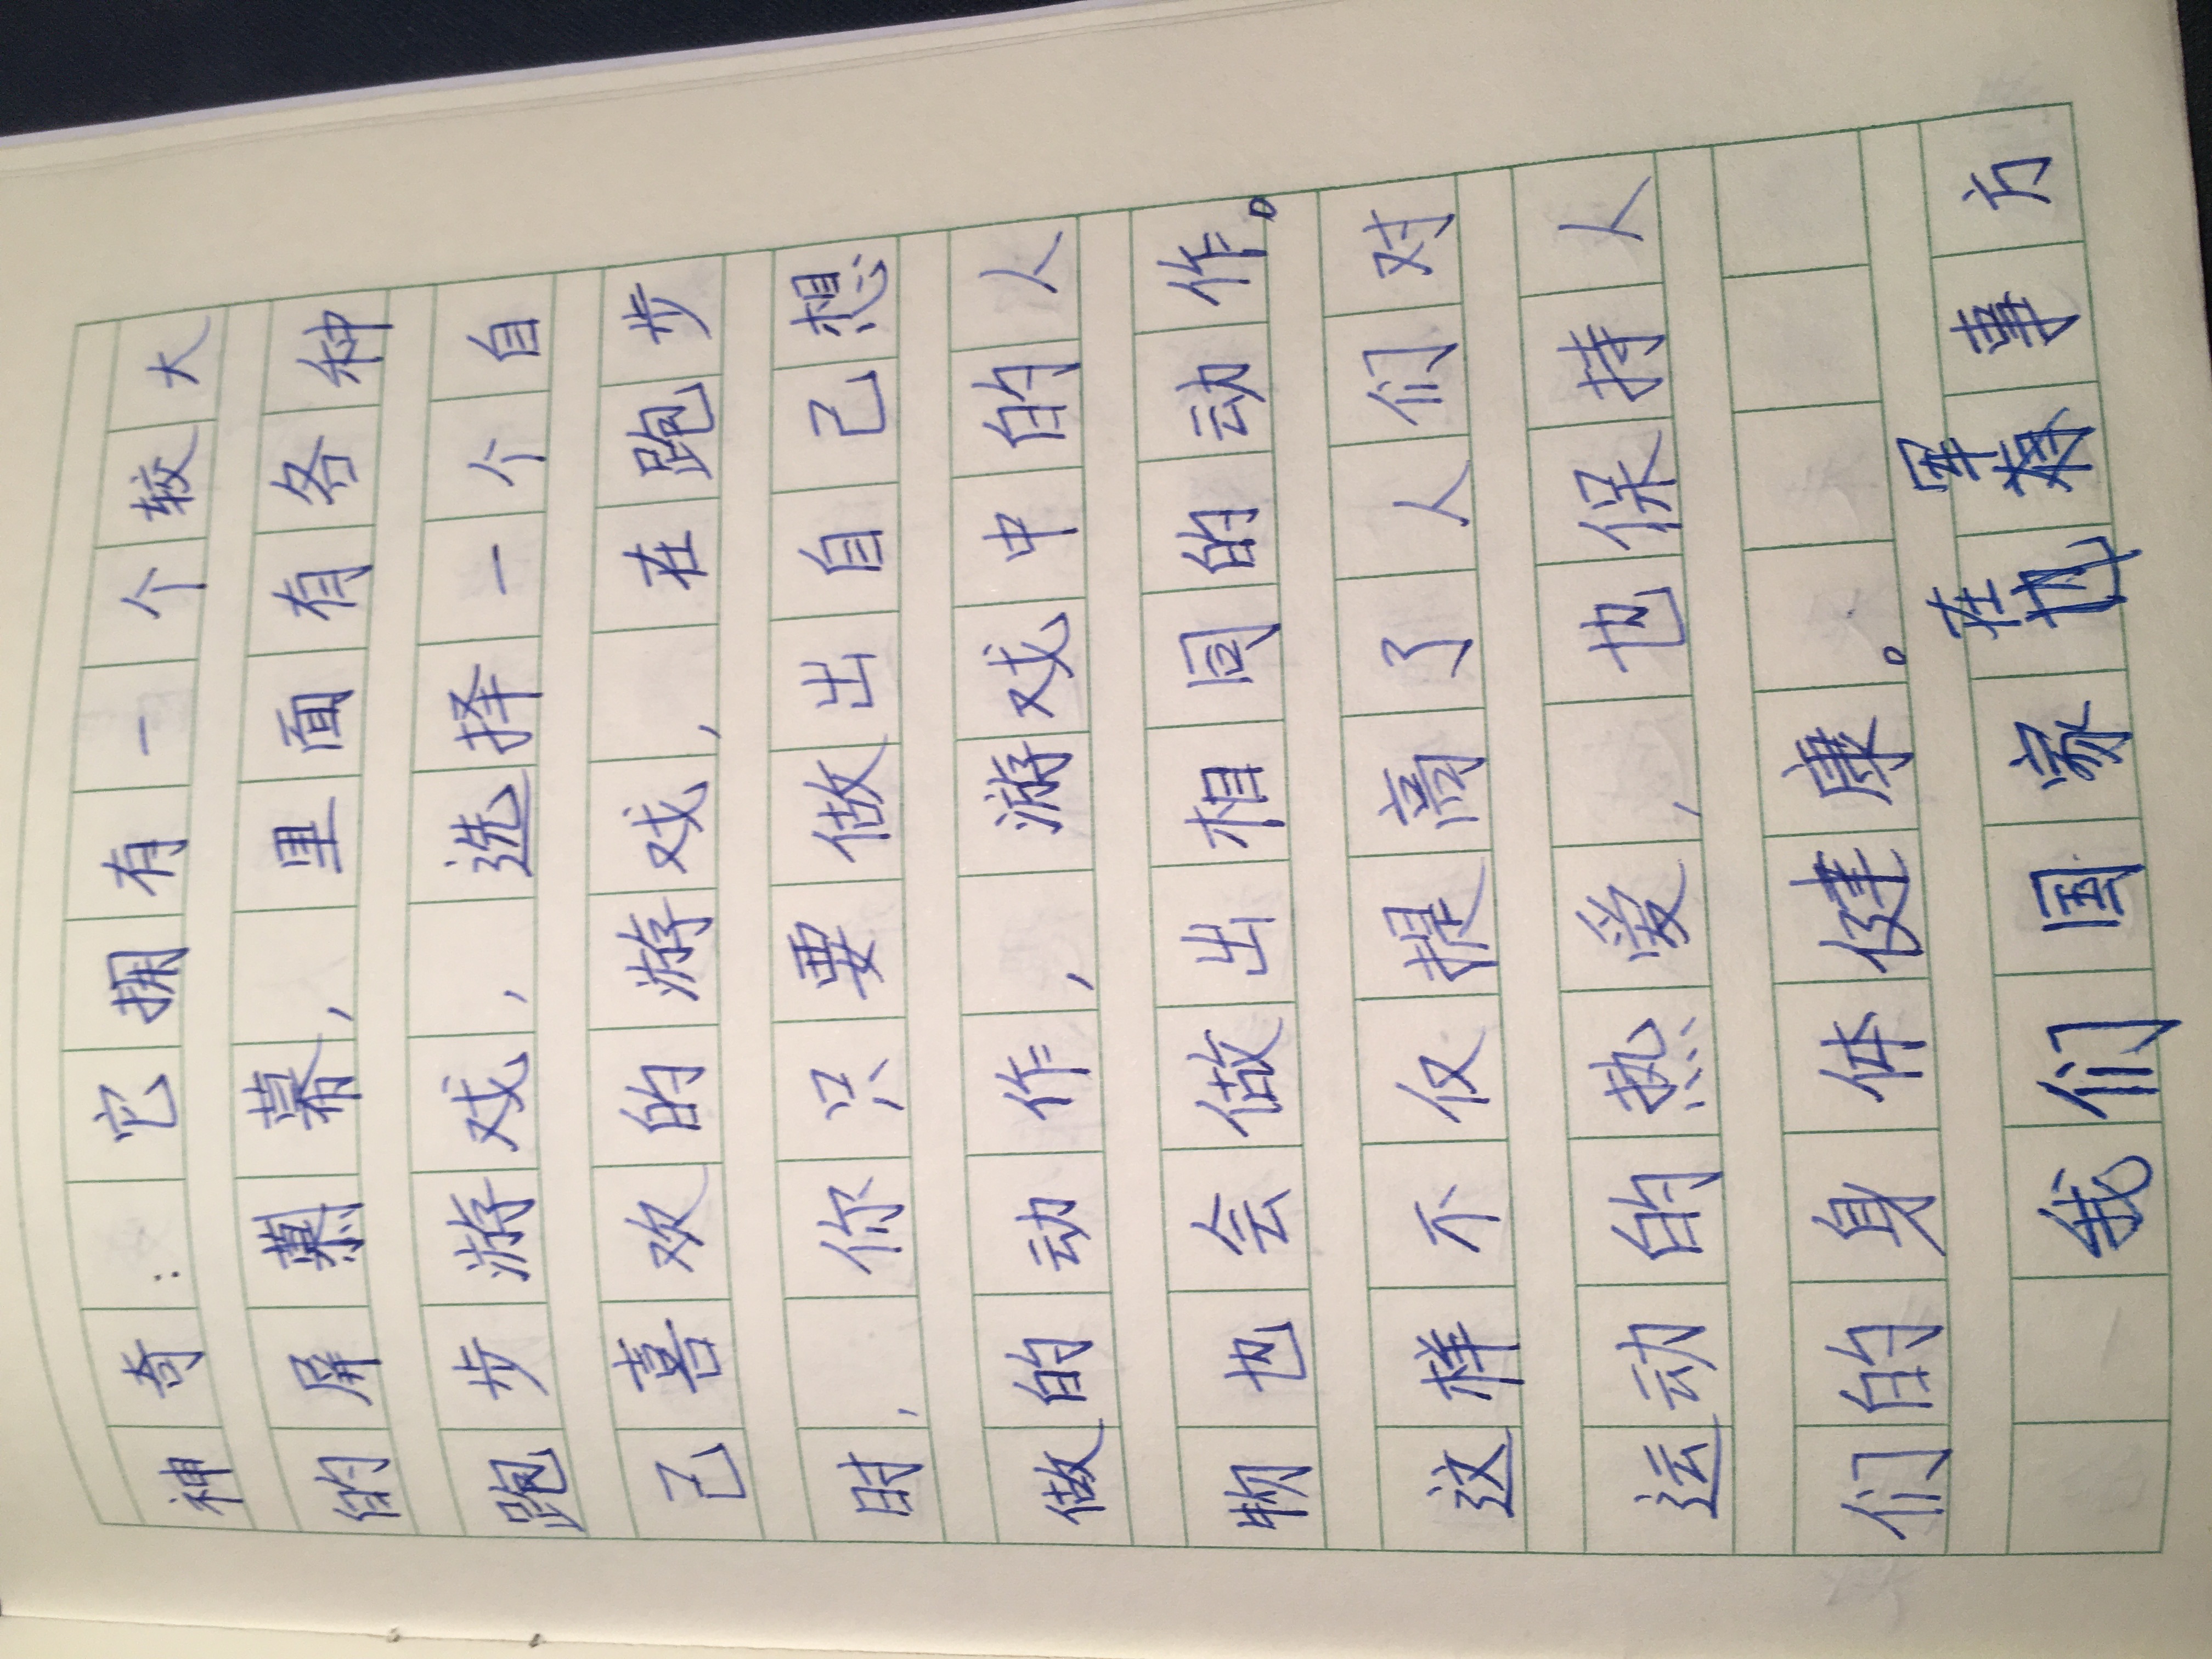 神奇：它拥有一个较大
的屏幕，里面有各种
跑步游戏，选择一个自
己喜欢的游戏，在跑步
时，你只要做出自己想
做的动作，游戏中的人
物也会做出相同的动作。
这样不仅提高了人们对
运动的热爱，也保持人
们的身体健康。
我们国家在军事方